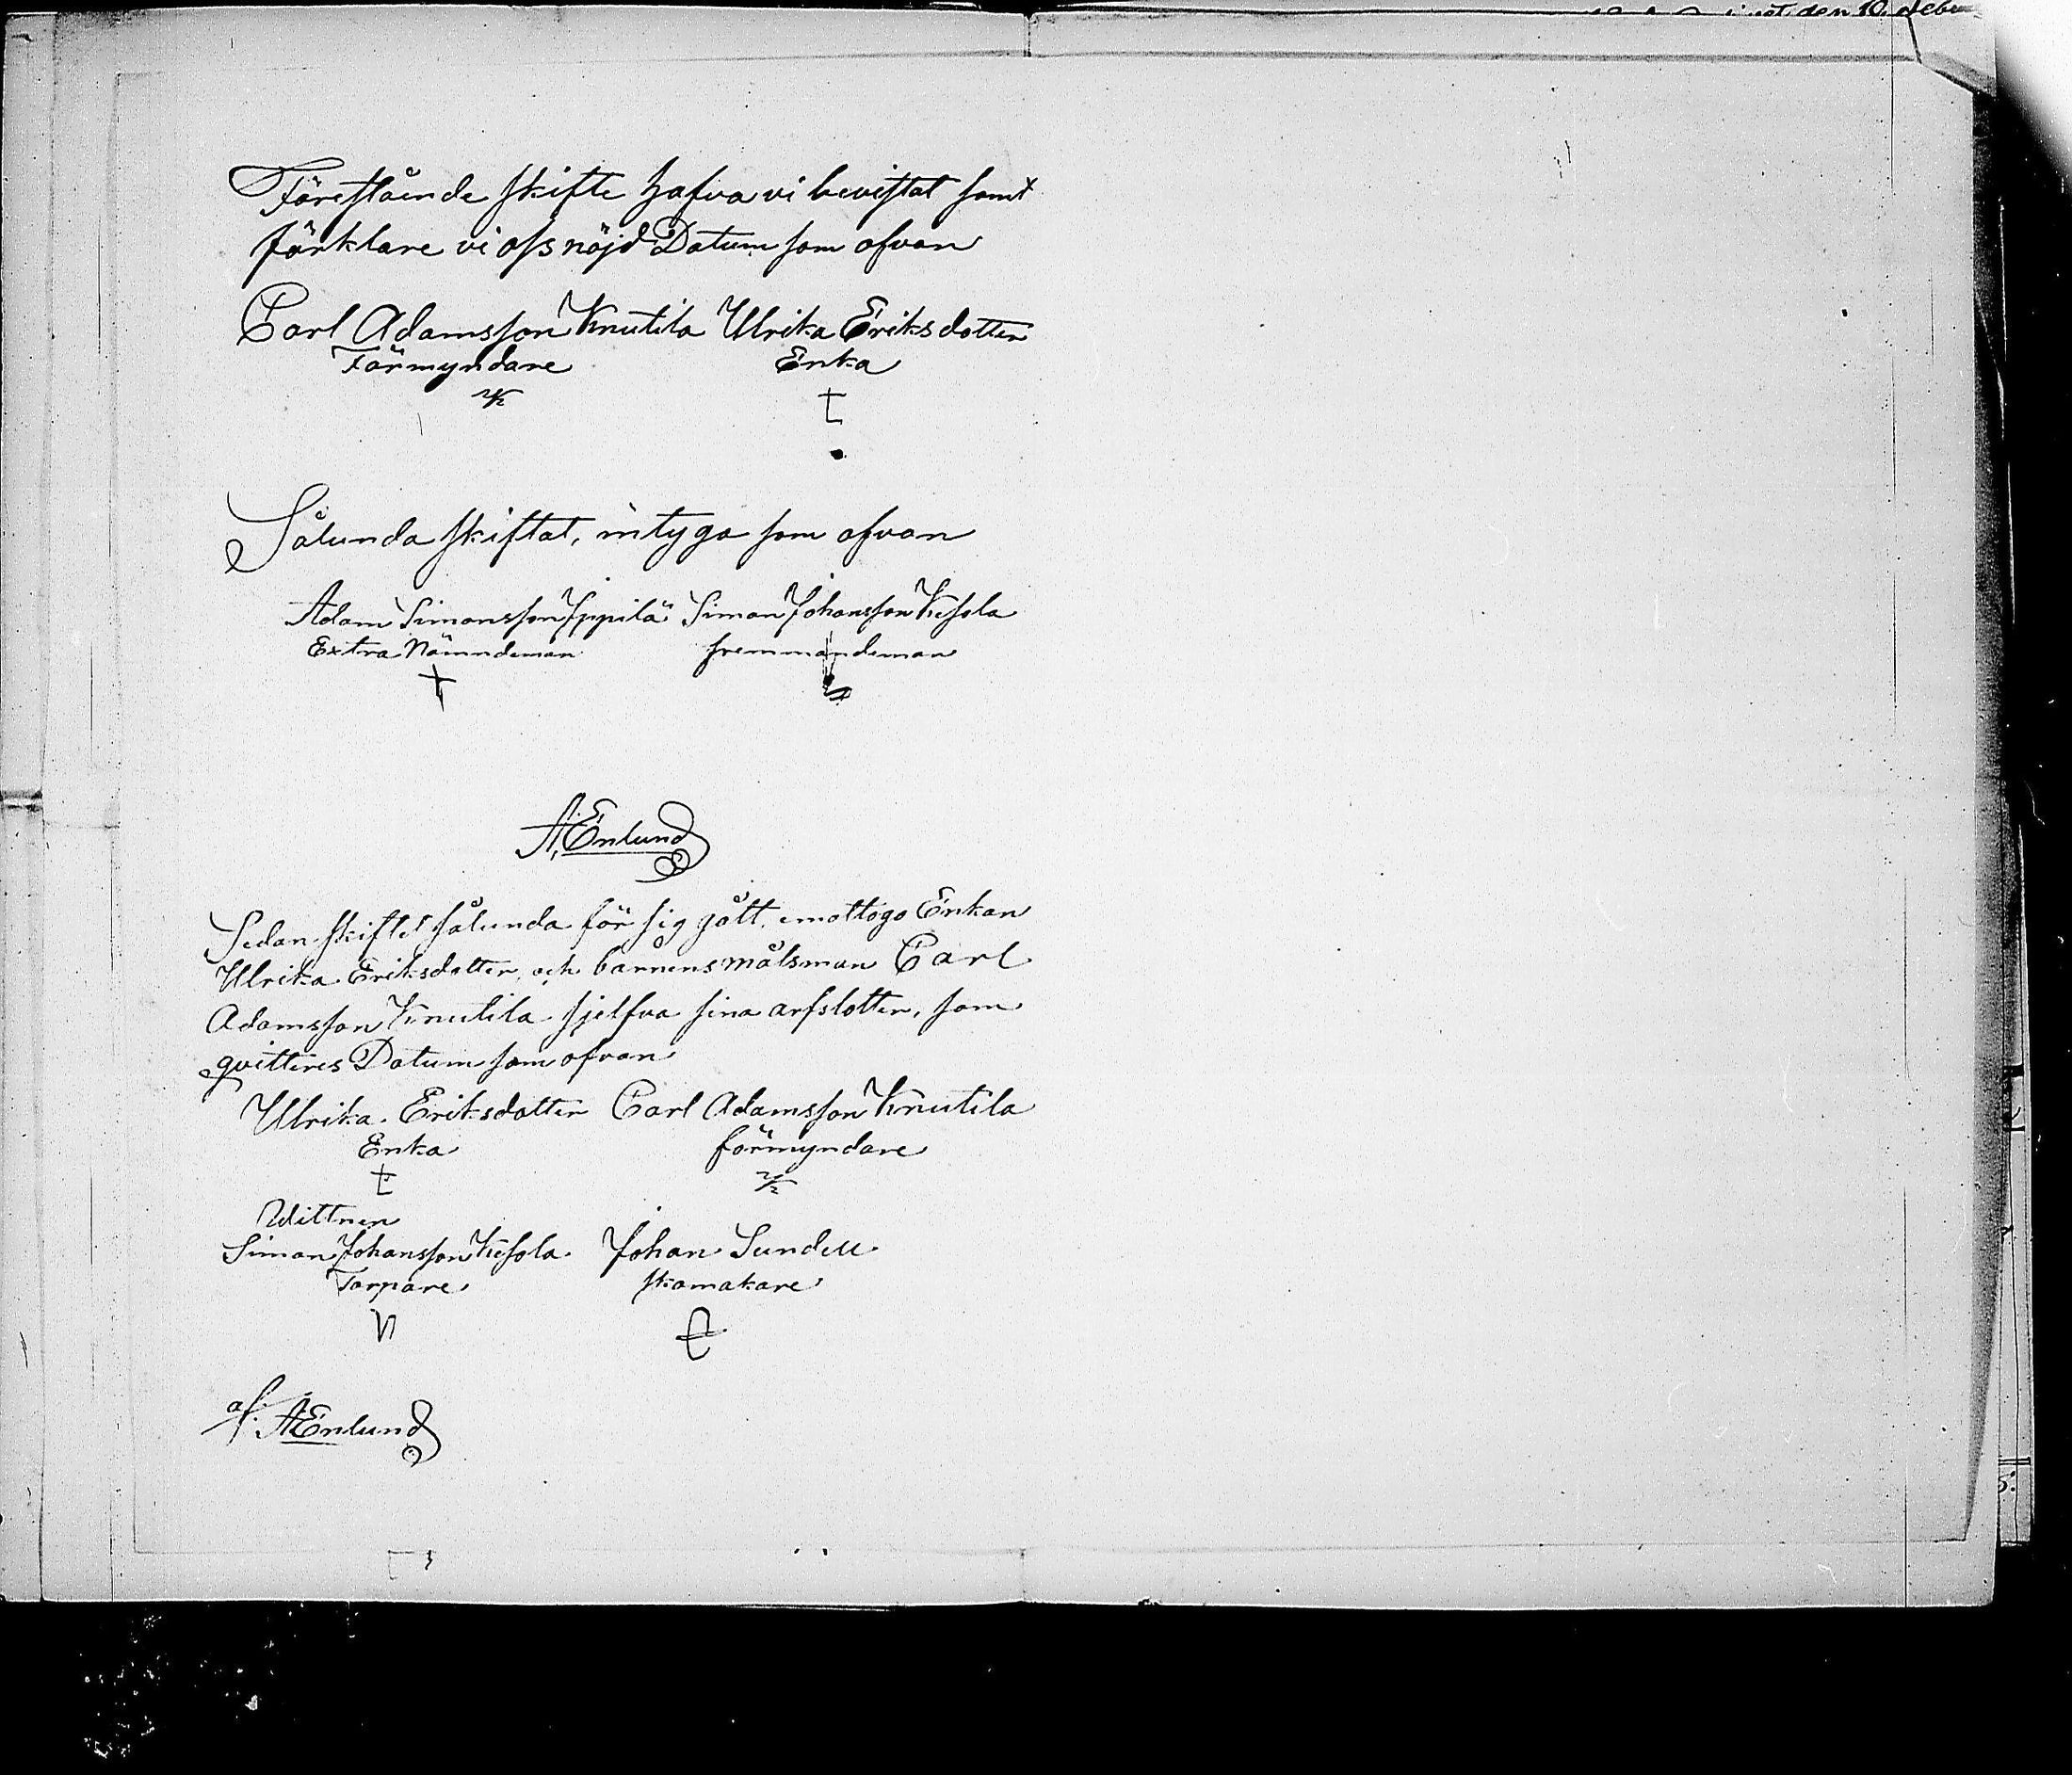 den 10.
Förestående skifte hafva vi bevistat samt
förklare vi oss nöjd Datum som ofvan
Carl Adamsson Knutila Ulrika Eriksdotter
Förmyndare Enka
Sålunda skiftat, intyga som ofvan
Adam Simonsson Yppilä Simon Johansson Kesola
Extra Nämndeman fremmandeman
A. Enlund
Sedan skiftet sålunda för sig gått, emottogo Enkan
Ulrika Eriksdotter, och barnens målsman Carl
Adamsson Knutila sjelfva sina arfslotter, som
qvitteres Datum som ofvan
Ulrika Eriksdotter Carl Adamsson Knutila
Enka förmyndare
Wittnen
Simon Johansson Kesola Johan Sundell
Torpare skomakare
af: A Enlund
5: